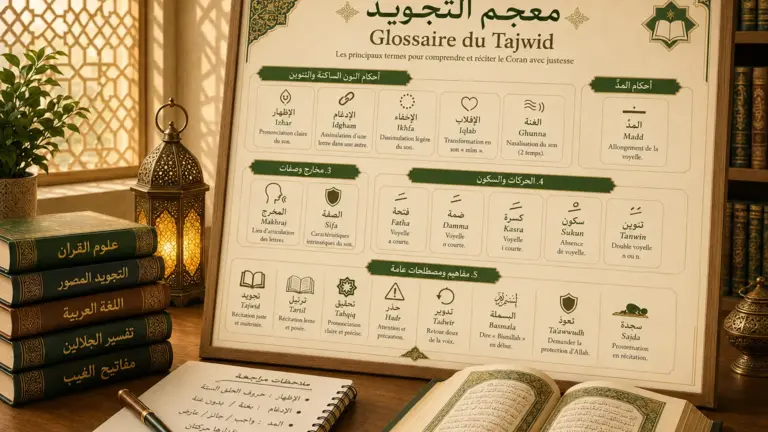 معجم التجويد
Glossaire du Tajwid
Les principaux termes pour comprendre et réciter le Coran avec justesse
أحكام النون الساكنة والتنوين
الإظهار
Izhar
Prononciation claire
du son.
الإدغام
Idgham
Assimilation d'une
lettre dans une autre.
الإخفاء
Ikhfa
Dissimulation légère
du son.
الإقلاب
Iqlab
Transformation en
son « mim ».
الغنة
Ghunna
Nasalisation du son
(2 temps).
أحكام المدّ
المدّ
Madd
Allongement de la
voyelle.
3. مخارج وصفات
المخرج
Makhraj
Lieu d'articulation
des lettres.
الصفة
Sifa
Caractéristiques
intrinsèques du son.
4. الحركات والسكون
فتحة
Fatha
Voyelle
a courte.
ضمة
Damma
Voyelle
o courte.
كسرة
Kasra
Voyelle
i courte.
سكون
Sukun
Absence
de voyelle.
تنوين
Tanwin
Double voyelle
n ou n.
5. مفاهيم ومصطلحات عامة
تجويد
Tajwid
Récitation juste
et maîtrisée.
ترتيل
Tartil
Récitation lente
et posée.
تحقيق
Tahqiq
Prononciation
claire et précise.
حذر
Hadr
Attention et
précaution.
تدوير
Tadwir
Retour doux
de la voix.
البسملة
Basmala
Dire « Bismillah »
en début.
تعوذ
Ta'awwudh
Demander la
protection d'Allah.
سجدة
Sajda
Prosternation
en récitation.
علوم القرآن
التجويد المصور
اللغة العربية
تفسير الجلالين
مفاتيح الغيب
ملاحظات مراجعة
الإظهار : حروف الحلق الستة
الإدغام : بغنة / بدون غنة
المد : واجب / جائز / عارض
حركتان